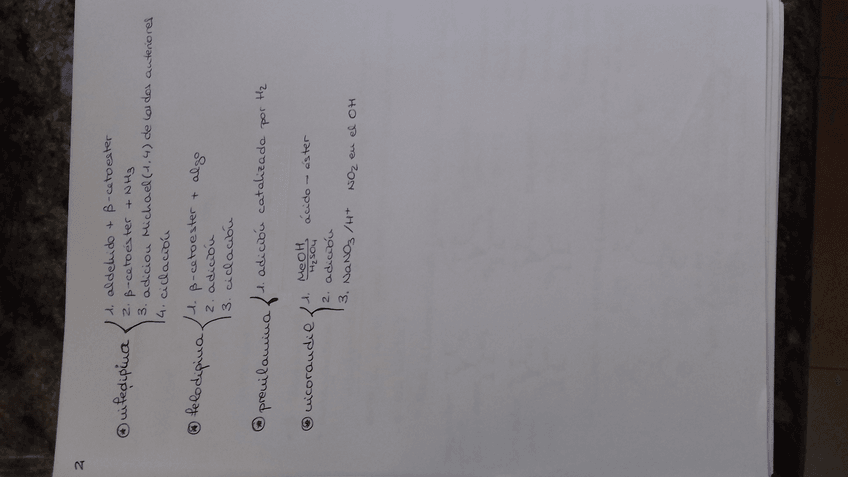 2
nifedipina 1. aldehido + β-cetoester
2. β-cetoester + NH3
3. adicion Michael (1,4) de los dos anteriores
4. ciclación
felodipina 1. β-cetoester + algo
2. adición
3. ciclación
prenilamina 1. adición catalizada por H2
nicorandil 1. MeOH/H2SO4 ácido → éster
2. adición
3. NaNO3/H+ NO2 en el OH